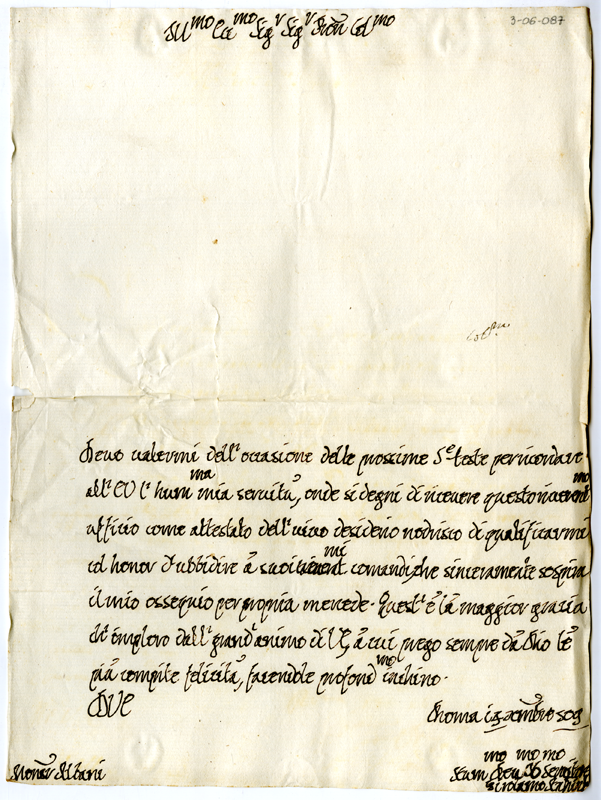 3-06-087
Ill.mo Ecc.mo Sig.r Sig.r Pron Col.mo
Devo valermi dell'occasione delle prossime S.te feste per ricordare
all'EV l'hum.ma mia servitù, onde si degni di ricevere questo
ufficio come attestato dell'vivo desiderio nodrisco di qualificarmi
col honor d'ubbidire à suoi comandi, che sinceramente sospira
il mio ossequio per propria mercede. Quest'è la maggior gratia
ch'imploro dall'grand'animo di V.E., à cui prego sempre dà Dio le
più compite felicità, facendole profond.mo inchino.
DVE
Roma xmbre
mo mo mo